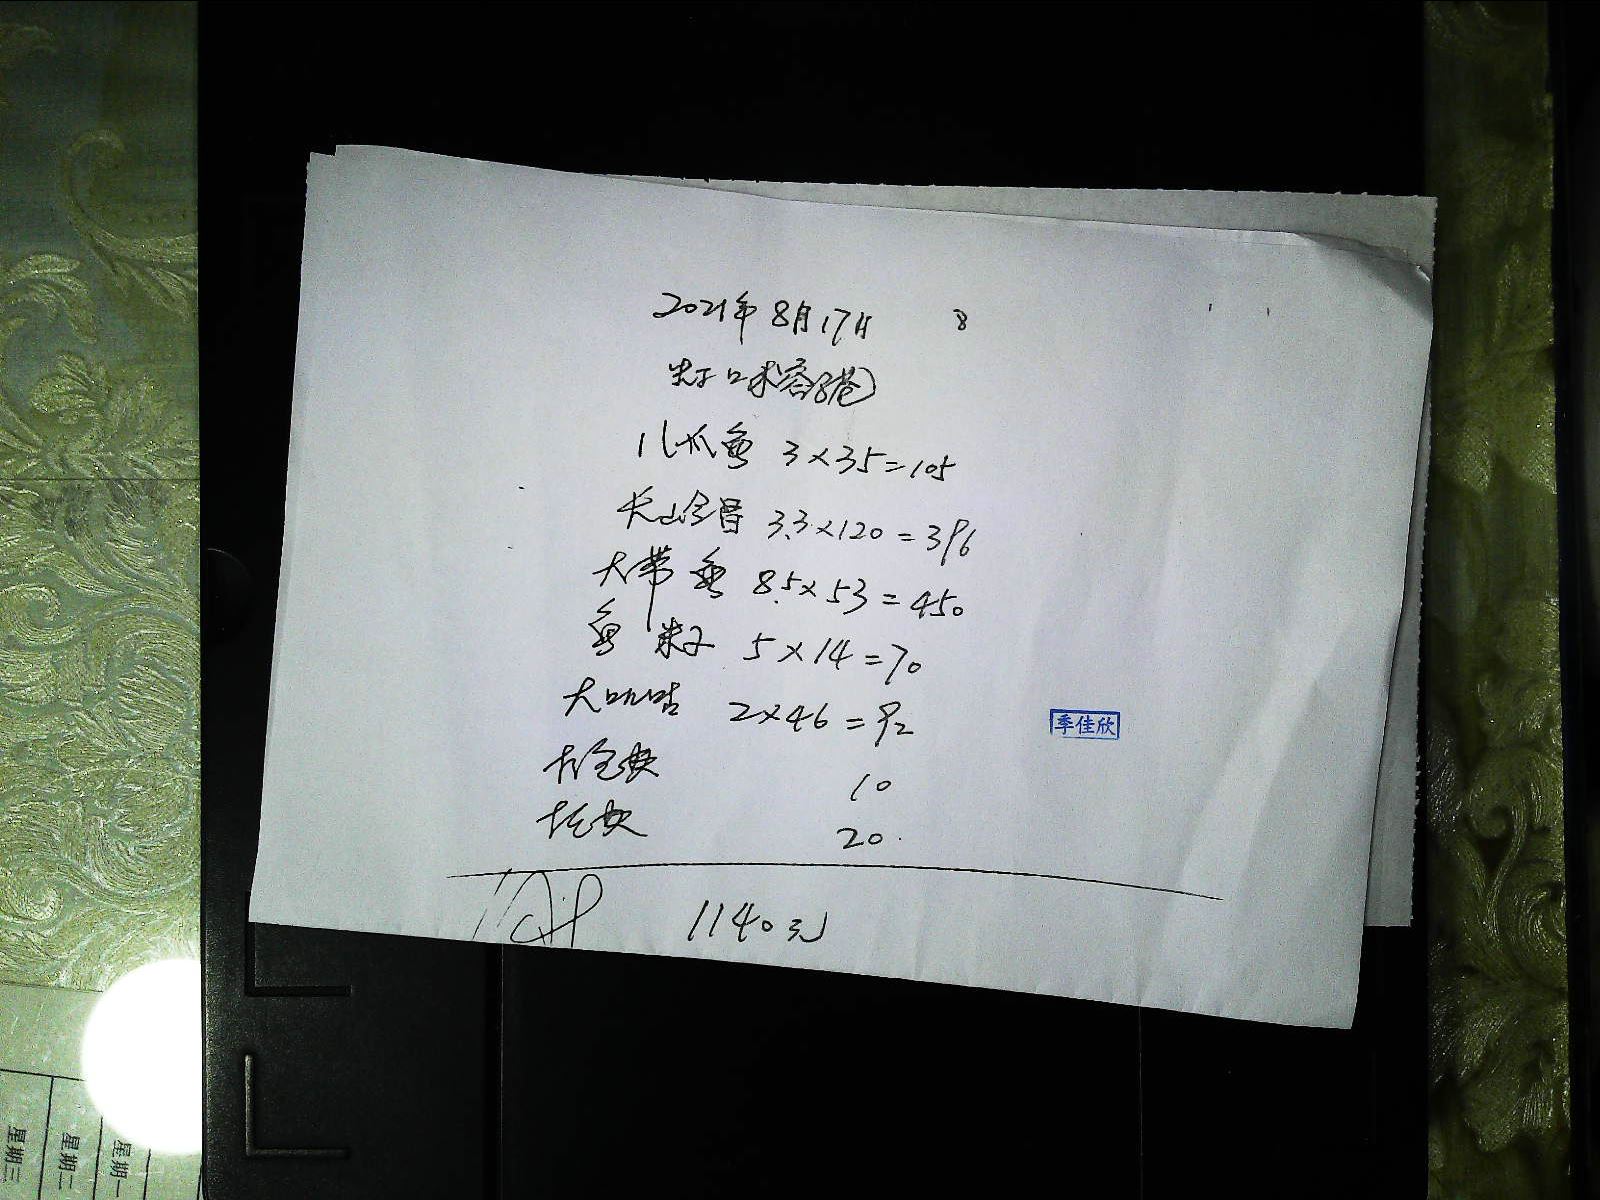 2021年8月17日 8
虹口味
八爪鱼 3×35=105
3.3×120=396
大带鱼 8.5×53=450
鱼籽 5×14=70
大叽咕 2×46=92
季佳欣
10
20
1140元
星期一
星期二
星期三